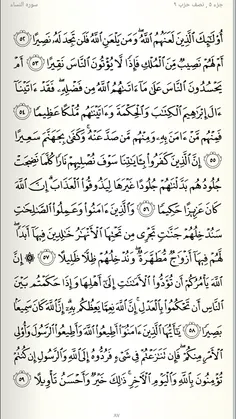 جزء ٥ , نصف حزب ٩ سورة النساء
أُو۟لَٰٓئِكَ ٱلَّذِينَ لَعَنَهُمُ ٱللَّهُ وَمَن يَلْعَنِ ٱللَّهُ فَلَن تَجِدَ لَهُۥ نَصِيرًا ٥٢
أَمْ لَهُمْ نَصِيبٌ مِّنَ ٱلْمُلْكِ فَإِذًا لَّا يُؤْتُونَ ٱلنَّاسَ نَقِيرًا ٥٣ أَمْ
يَحْسُدُونَ ٱلنَّاسَ عَلَىٰ مَآ ءَاتَىٰهُمُ ٱللَّهُ مِن فَضْلِهِۦ فَقَدْ ءَاتَيْنَآ
ءَالَ إِبْرَٰهِيمَ ٱلْكِتَٰبَ وَٱلْحِكْمَةَ وَءَاتَيْنَٰهُم مُّلْكًا عَظِيمًا ٥٤
فَمِنْهُم مَّنْ ءَامَنَ بِهِۦ وَمِنْهُم مَّن صَدَّ عَنْهُ وَكَفَىٰ بِجَهَنَّمَ سَعِيرًا
٥٥ إِنَّ ٱلَّذِينَ كَفَرُوا۟ بِـَٔايَٰتِنَا سَوْفَ نُصْلِيهِمْ نَارًا كُلَّمَا نَضِجَتْ
جُلُودُهُم بَدَّلْنَٰهُمْ جُلُودًا غَيْرَهَا لِيَذُوقُوا۟ ٱلْعَذَابَ إِنَّ ٱللَّهَ
كَانَ عَزِيزًا حَكِيمًا ٥٦ وَٱلَّذِينَ ءَامَنُوا۟ وَعَمِلُوا۟ ٱلصَّٰلِحَٰتِ
سَنُدْخِلُهُمْ جَنَّٰتٍ تَجْرِى مِن تَحْتِهَا ٱلْأَنْهَٰرُ خَٰلِدِينَ فِيهَآ أَبَدًا
لَّهُمْ فِيهَآ أَزْوَٰجٌ مُّطَهَّرَةٌ وَنُدْخِلُهُمْ ظِلًّا ظَلِيلًا ٥٧ ۞ إِنَّ
ٱللَّهَ يَأْمُرُكُمْ أَن تُؤَدُّوا۟ ٱلْأَمَٰنَٰتِ إِلَىٰٓ أَهْلِهَا وَإِذَا حَكَمْتُم بَيْنَ
ٱلنَّاسِ أَن تَحْكُمُوا۟ بِٱلْعَدْلِ إِنَّ ٱللَّهَ نِعِمَّا يَعِظُكُم بِهِۦٓ إِنَّ ٱللَّهَ كَانَ سَمِيعًۢا
بَصِيرًا ٥٨ يَٰٓأَيُّهَا ٱلَّذِينَ ءَامَنُوٓا۟ أَطِيعُوا۟ ٱللَّهَ وَأَطِيعُوا۟ ٱلرَّسُولَ وَأُو۟لِى
ٱلْأَمْرِ مِنكُمْ فَإِن تَنَٰزَعْتُمْ فِى شَىْءٍ فَرُدُّوهُ إِلَى ٱللَّهِ وَٱلرَّسُولِ إِن كُنتُمْ
تُؤْمِنُونَ بِٱللَّهِ وَٱلْيَوْمِ ٱلْـَٔاخِرِ ذَٰلِكَ خَيْرٌ وَأَحْسَنُ تَأْوِيلًا ٥٩